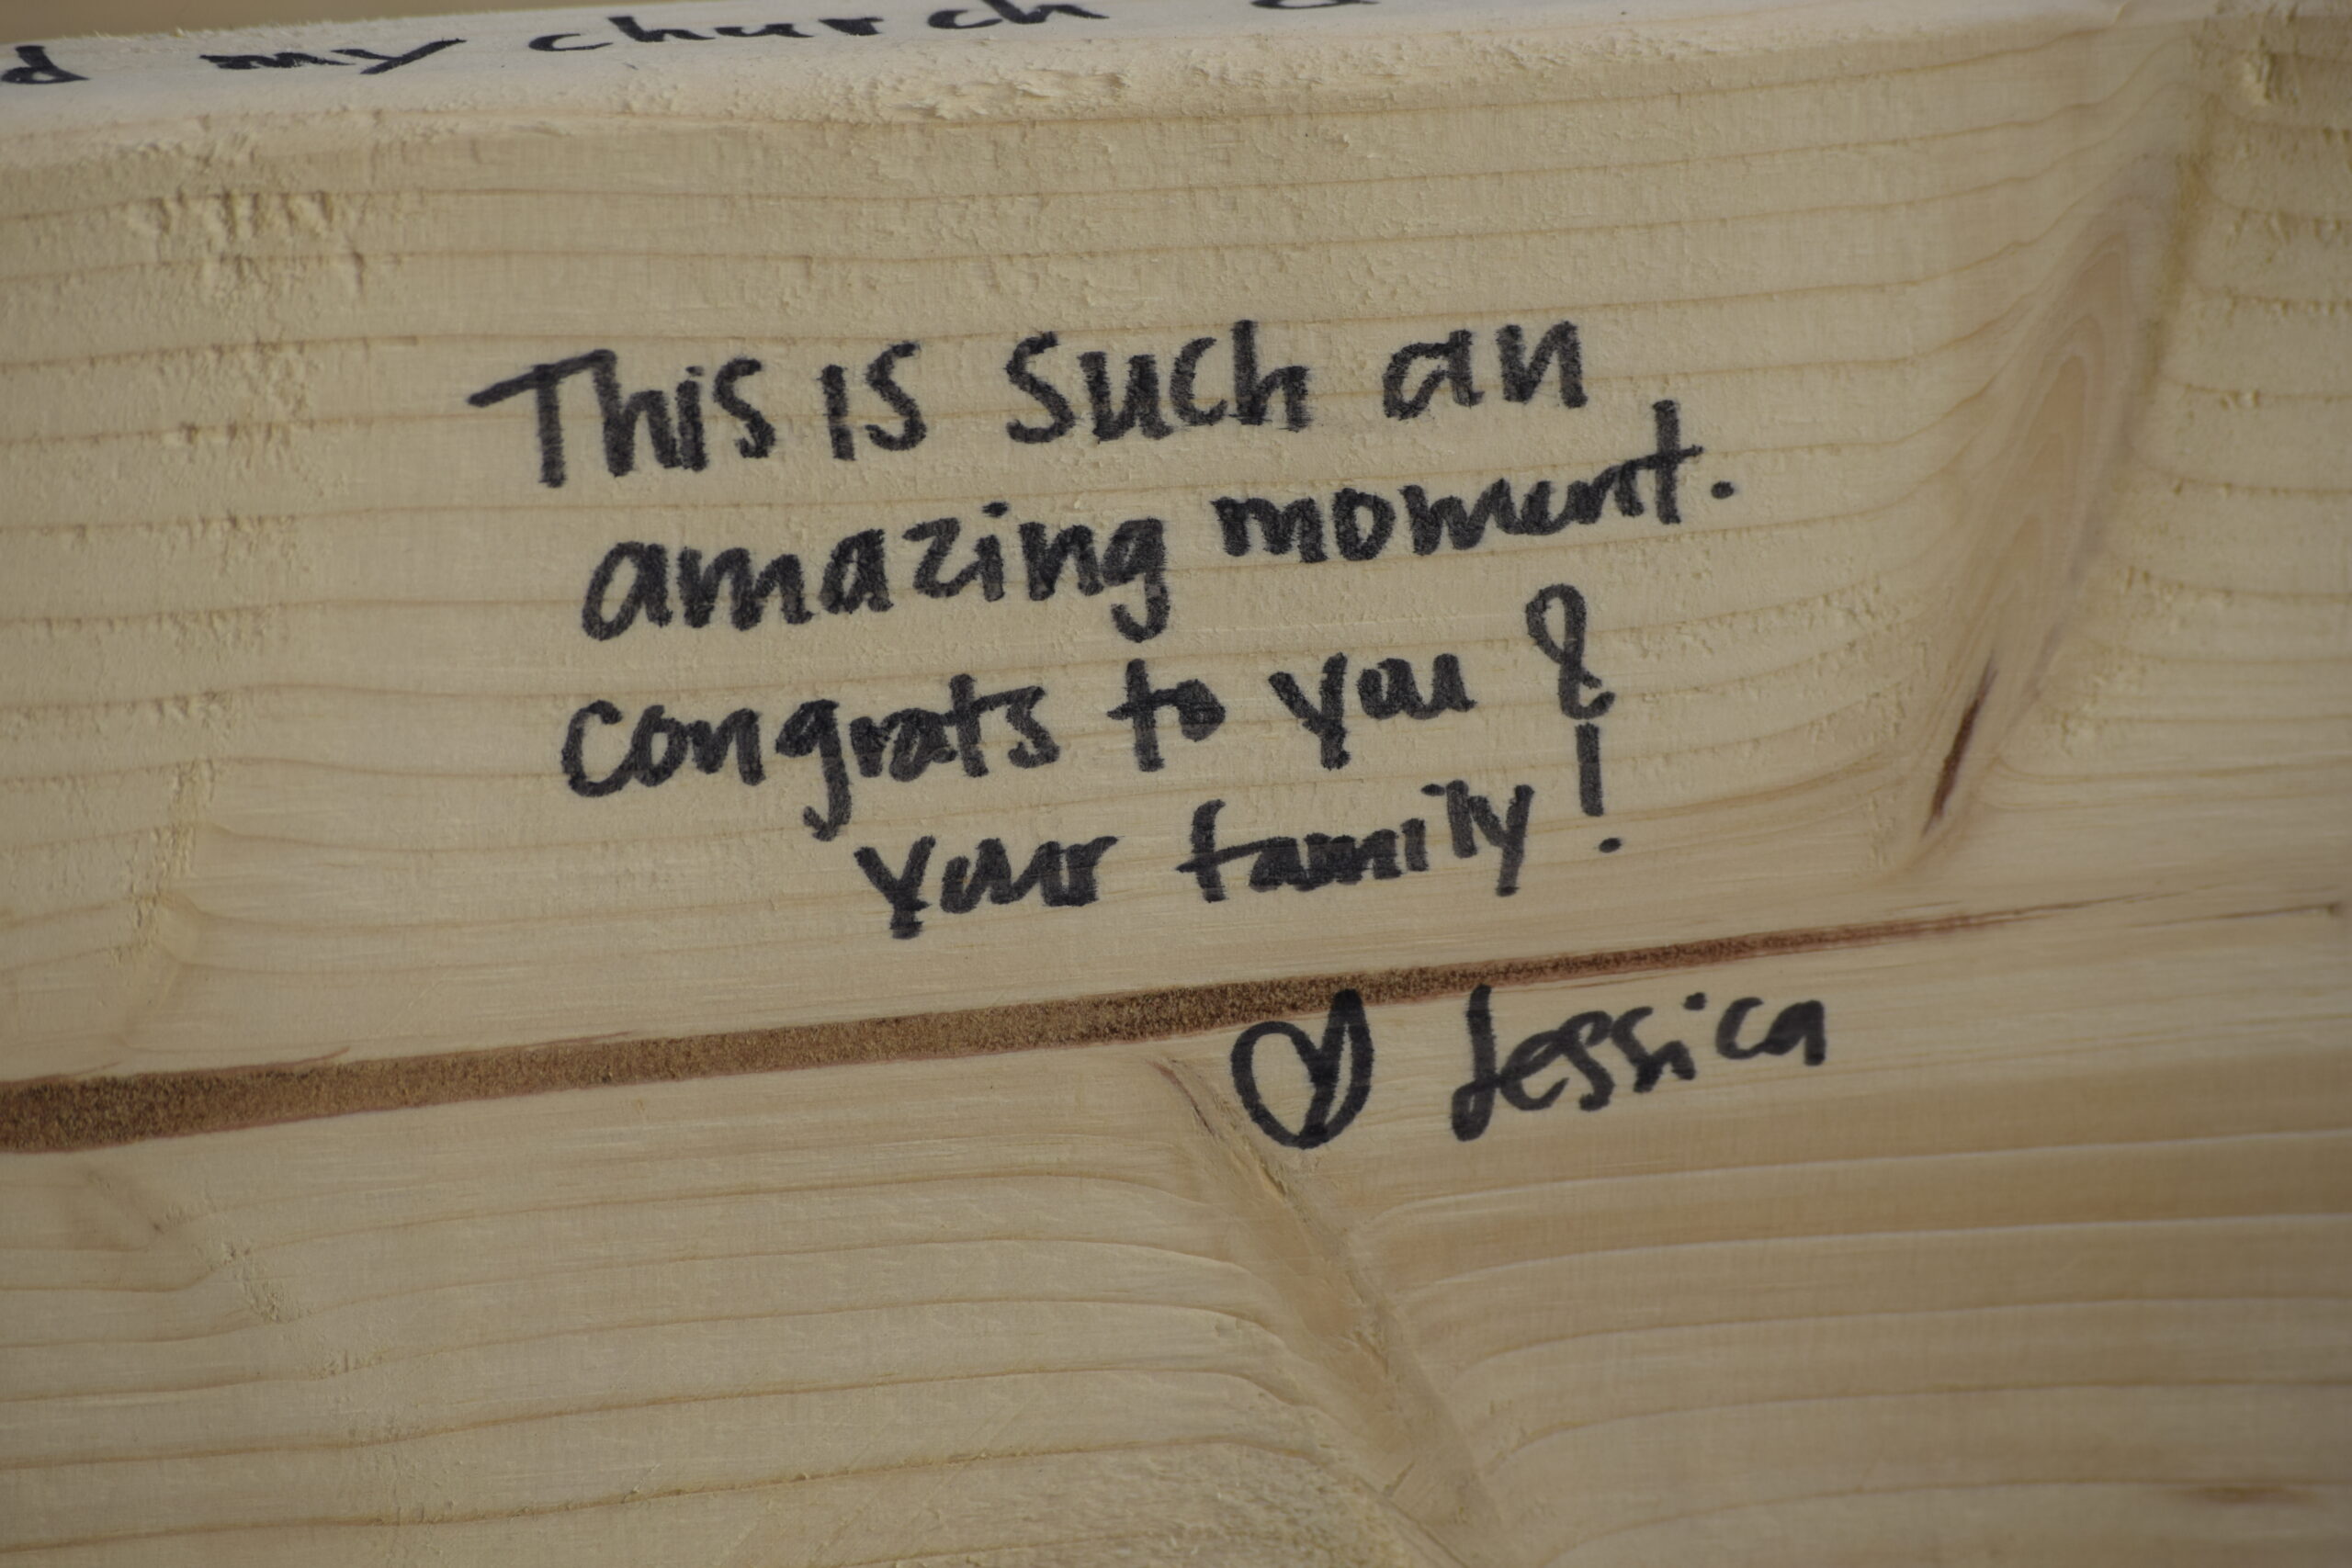 my church
This is such an
amazing moment.
congrats to you &
your family!
♡ Jessica